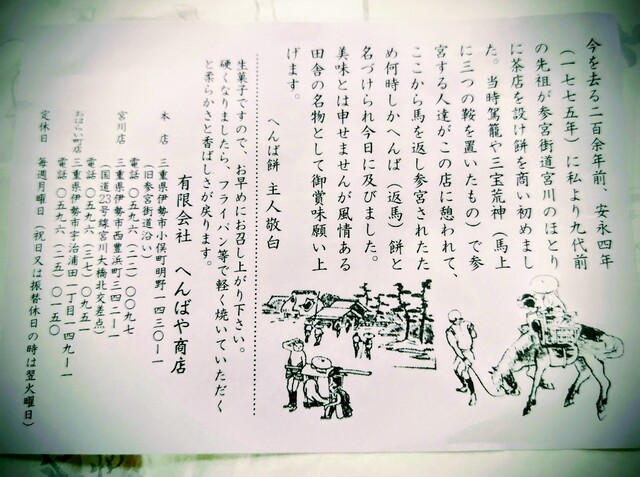 今を去る二百余年前、安永四年
（一七七五年）に私より九代前
の先祖が参宮街道宮川のほとり
に茶店を設け餅を商い初めまし
た。当時駕籠や三宝荒神（馬上
に三つの鞍を置いたもの）で参
宮する人達がこの店に憩われて、
ここから馬を返し参宮されたた
め何時しかへんば（返馬）餅と
名づけられ今日に及びました。
美味とは申せませんが風情ある
田舎の名物として御賞味願い上
げます。
へんば餅 主人敬白
生菓子ですので、お早めにお召し上がり下さい。
硬くなりましたら、フライパン等で軽く焼いていただく
と柔らかさと香ばしさが戻ります。
有限会社 へんばや商店
本店 三重県伊勢市小俣町明野一四三〇ー一
（旧参宮街道沿い）
電話 〇五九六（二二）〇〇九七
宮川店 三重県伊勢市西豊浜町三四二ー一
（国道23号線宮川大橋北交差点）
電話 〇五九六（三七）〇九五一
おはらい町店 三重県伊勢市宇治浦田一丁目一四九ー一
電話 〇五九六（二五）〇一五〇
定休日 毎週月曜日（祝日又は振替休日の時は翌火曜日）